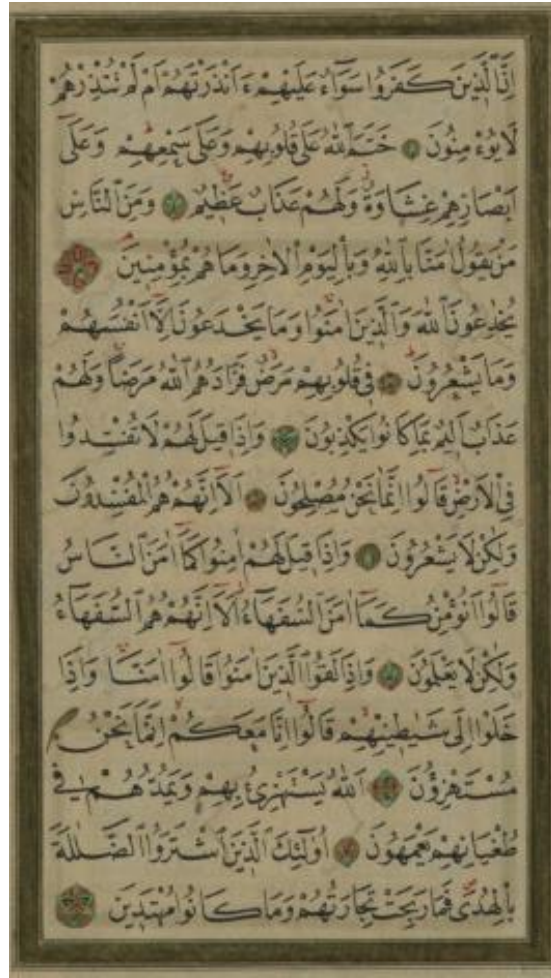 اِنَّ الَّذٖينَ كَفَرُوا سَوَٓاءٌ عَلَيْهِمْ ءَاَنْذَرْتَهُمْ اَمْ لَمْ تُنْذِرْهُمْ
لَا يُؤْمِنُونَ خَتَمَ اللّٰهُ عَلٰى قُلُوبِهِمْ وَعَلٰى سَمْعِهِمْ وَعَلٰٓى
اَبْصَارِهِمْ غِشَاوَةٌ وَلَهُمْ عَذَابٌ عَظٖيمٌ وَمِنَ النَّاسِ
مَنْ يَقُولُ اٰمَنَّا بِاللّٰهِ وَبِالْيَوْمِ الْاٰخِرِ وَمَا هُمْ بِمُؤْمِنٖينَ
يُخَادِعُونَ اللّٰهَ وَالَّذٖينَ اٰمَنُوا وَمَا يَخْدَعُونَ اِلَّٓا اَنْفُسَهُمْ
وَمَا يَشْعُرُونَ فٖى قُلُوبِهِمْ مَرَضٌ فَزَادَهُمُ اللّٰهُ مَرَضًا وَلَهُمْ
عَذَابٌ اَلٖيمٌ بِمَا كَانُوا يَكْذِبُونَ وَاِذَا قٖيلَ لَهُمْ لَا تُفْسِدُوا
فِى الْاَرْضِ قَالُٓوا اِنَّمَا نَحْنُ مُصْلِحُونَ اَلَٓا اِنَّهُمْ هُمُ الْمُفْسِدُونَ
وَلٰكِنْ لَا يَشْعُرُونَ وَاِذَا قٖيلَ لَهُمْ اٰمِنُوا كَمَٓا اٰمَنَ النَّاسُ
قَالُٓوا اَنُؤْمِنُ كَمَٓا اٰمَنَ السُّفَهَٓاءُ اَلَٓا اِنَّهُمْ هُمُ السُّفَهَٓاءُ
وَلٰكِنْ لَا يَعْلَمُونَ وَاِذَا لَقُوا الَّذٖينَ اٰمَنُوا قَالُٓوا اٰمَنَّا وَاِذَا
خَلَوْا اِلٰى شَيَاطٖينِهِمْ قَالُٓوا اِنَّا مَعَكُمْ اِنَّمَا نَحْنُ
مُسْتَهْزِؤُنَ اَللّٰهُ يَسْتَهْزِئُ بِهِمْ وَيَمُدُّهُمْ فٖى
طُغْيَانِهِمْ يَعْمَهُونَ اُولٰٓئِكَ الَّذٖينَ اشْتَرَوُا الضَّلَالَةَ
بِالْهُدٰى فَمَا رَبِحَتْ تِجَارَتُهُمْ وَمَا كَانُوا مُهْتَدٖينَ